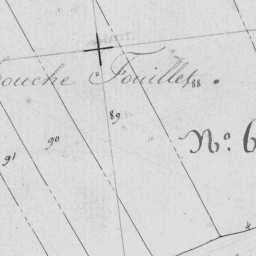 ouche Fouillet.
88
89
90
91
N.º 6